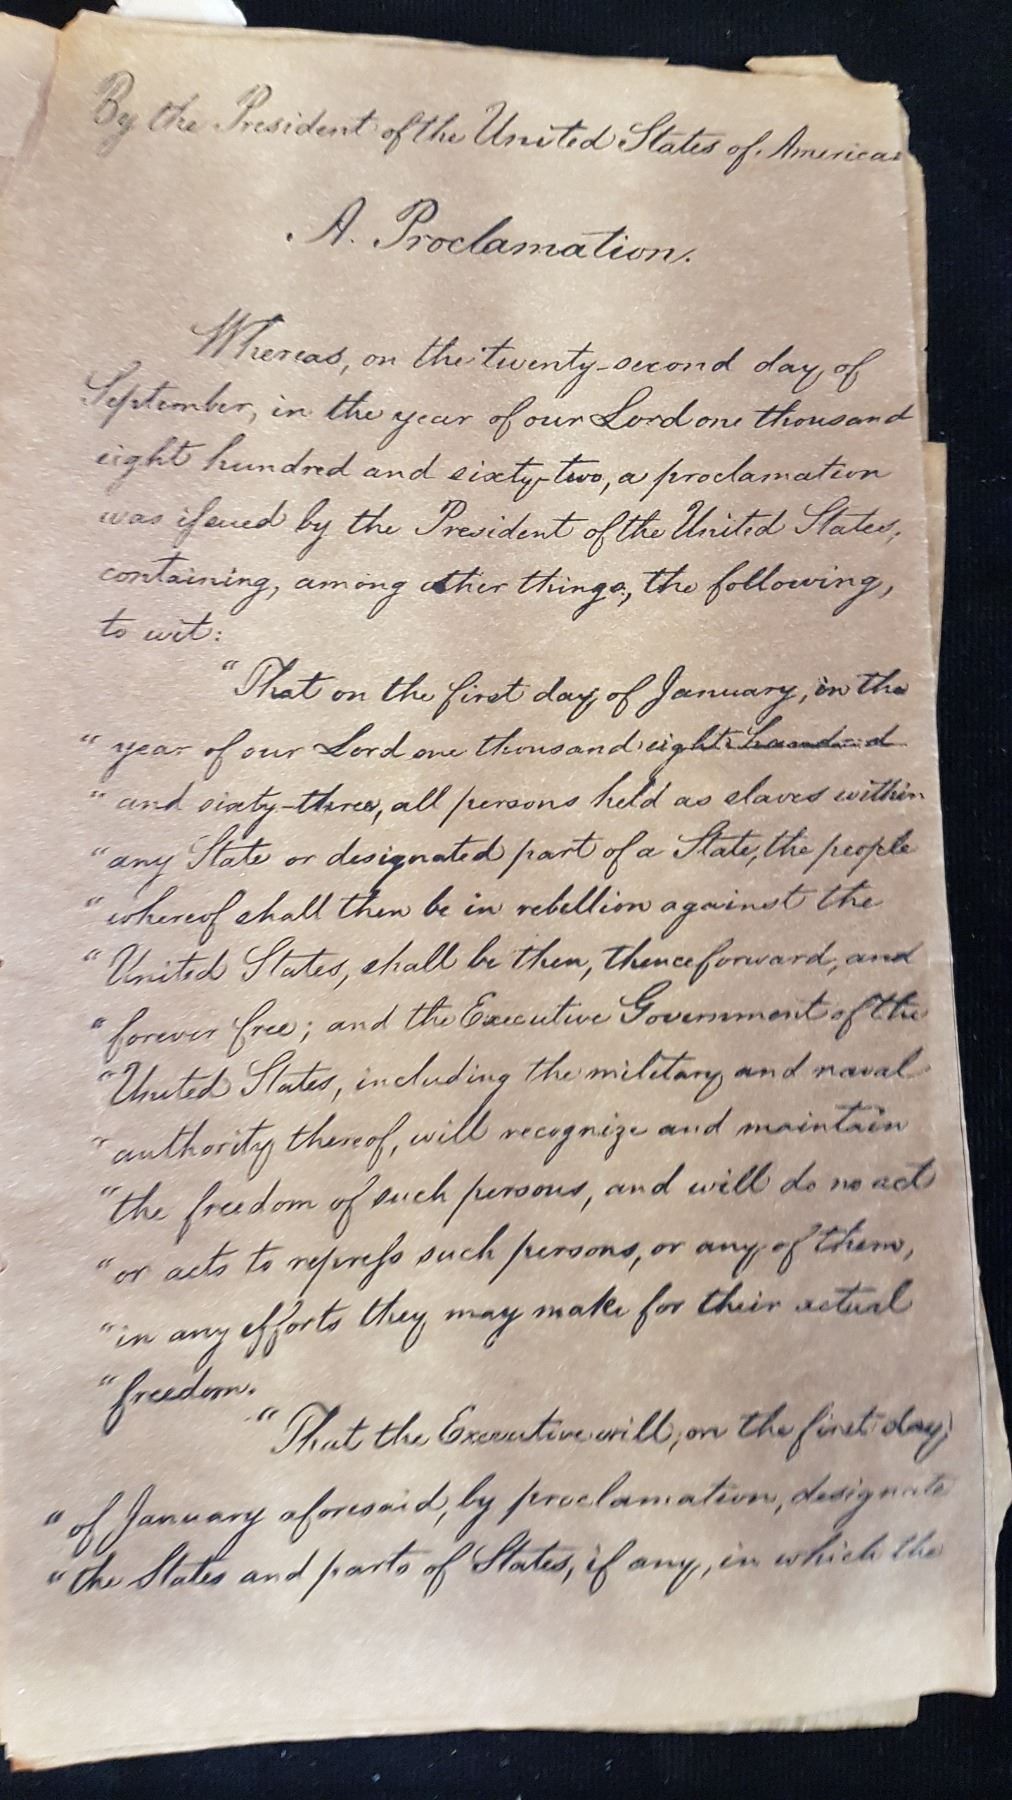 By the President of the United States of America:
A. Proclamation.
Whereas, on the twenty-second day of
September, in the year of our Lord one thousand
eight hundred and sixty-two, a proclamation
was issued by the President of the United States,
containing, among other things, the following,
to wit:
"That on the first day of January, in the
"year of our Lord one thousand eight hundred
"and sixty-three, all persons held as slaves within
"any State or designated part of a State, the people
"whereof shall then be in rebellion against the
"United States, shall be then, thenceforward, and
"forever free; and the Executive Government of the
"United States, including the military and naval
"authority thereof, will recognize and maintain
"the freedom of such persons, and will do no act
"or acts to repress such persons, or any of them,
"in any efforts they may make for their actual
"freedom.
"That the Executive will, on the first day
"of January aforesaid, by proclamation, designate
"the States and parts of States, if any, in which the